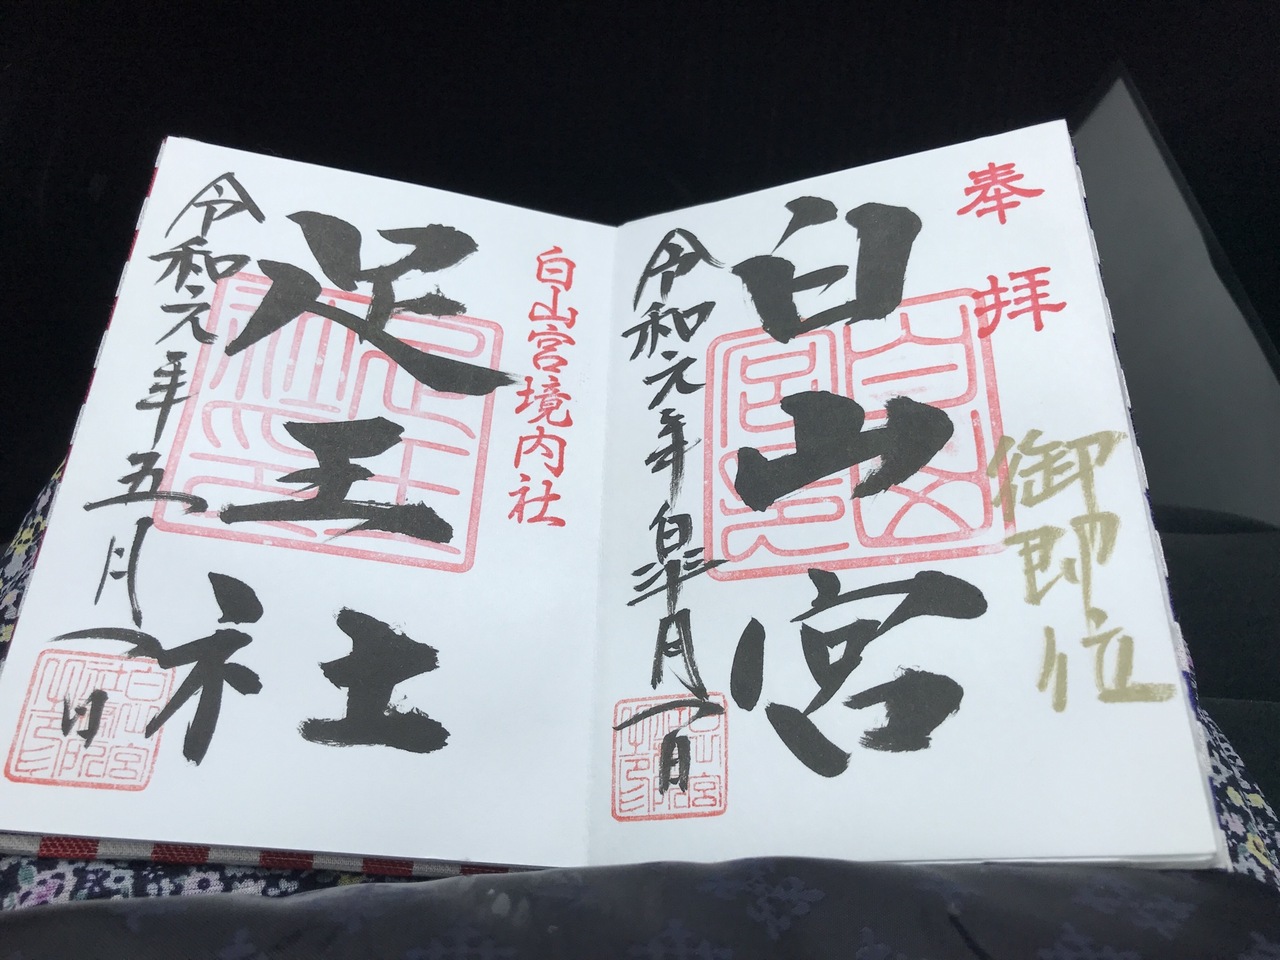 奉拝
御即位
白山宮
令和元年皐月一日
白山宮境内社
足王社
令和元年五月一日